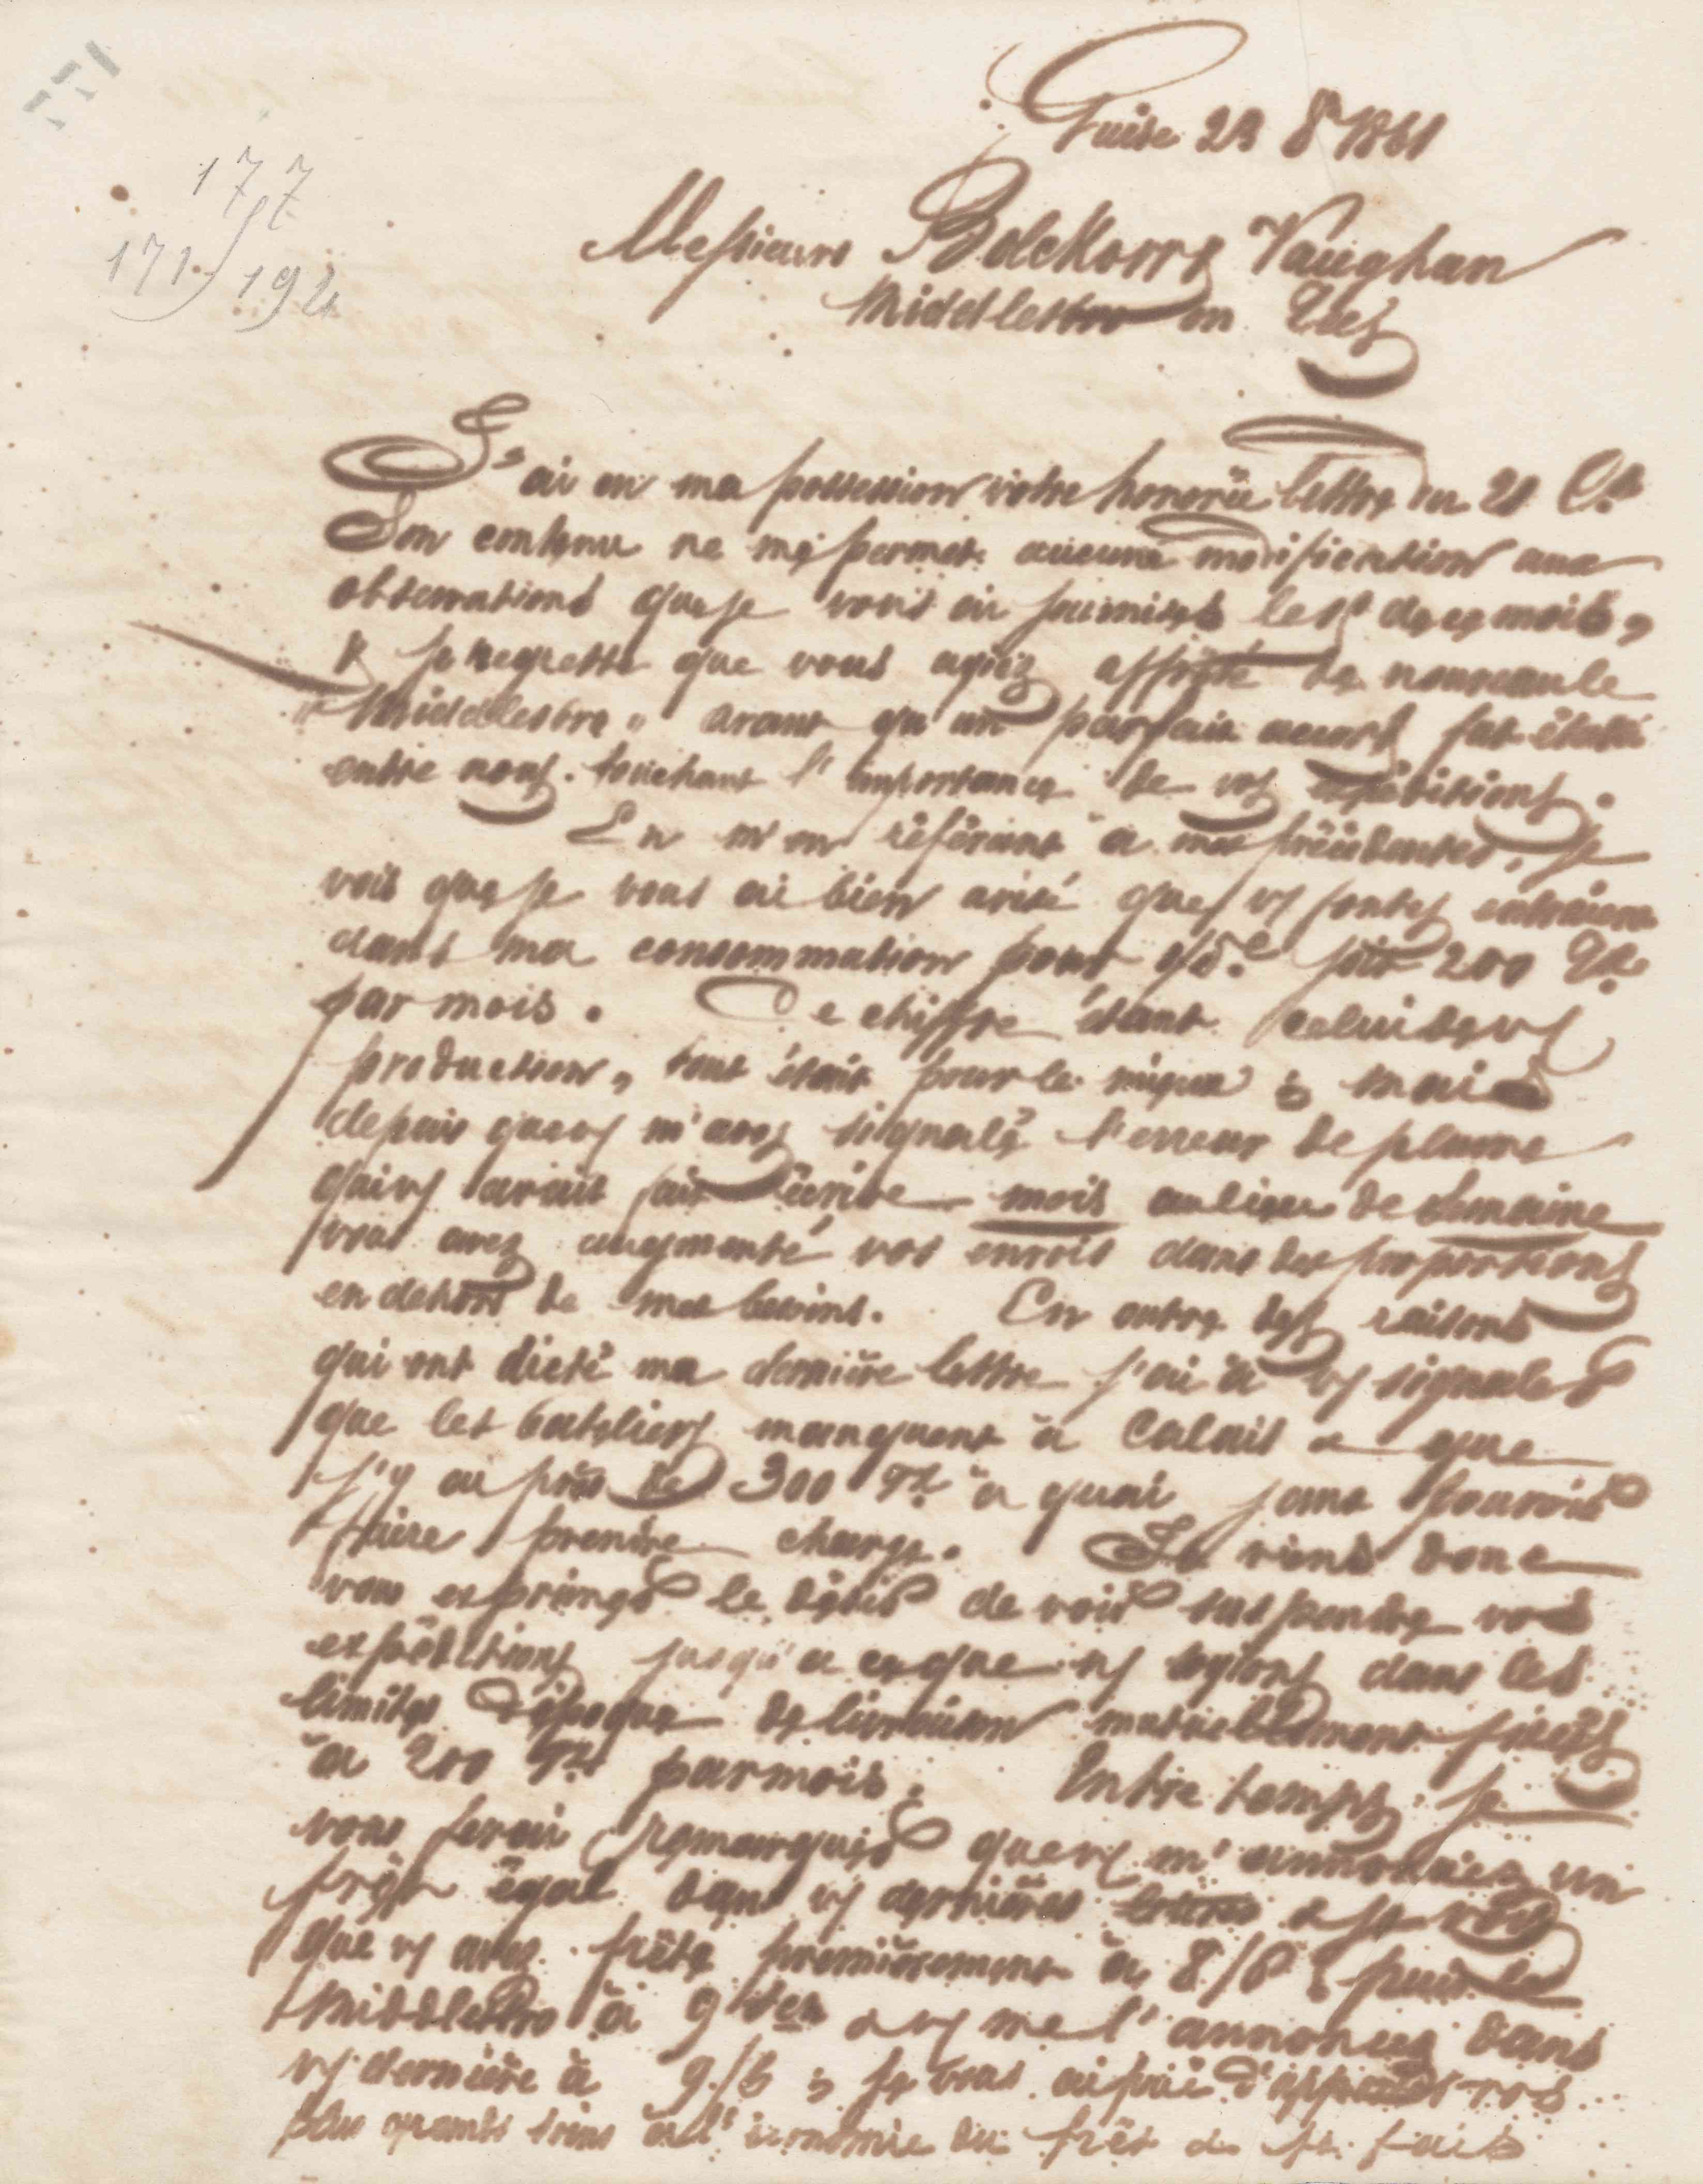 177
177
171 194
Guise 23 8bre 1861
Messieurs Bolckow Vaughan
Middlesbro on Tees
J'ai en ma possession votre honorée lettre du 21 Ct
Son contenu ne me permet aucune modification aux
observations que je vous ai soumises le de ce mois,
& je regrette que vous ayiez affrété de nouveau le
"Middlesbro" avant qu'un parfait accord fut établi
entre nous touchant l'importance de vos expéditions.
En m'en référant à mes précédentes, je
vois que je vous ai bien avisé que vs fontes entraient
dans ma consommation pour soit 200 Tes
par mois. Ce chiffre étant celui de vs
production, tout était pour le mieux ; mais
depuis que vs m'avez signalé l'erreur de plume
qui vs avait fait écrire mois au lieu de semaine
vous avez augmenté vos envois dans des proportions
en dehors de mes besoins. En outre des raisons
qui ont dicté ma dernière lettre j'ai à vs signaler
que les bateliers manquent à Calais & que
j'y ai près de 300 Tes à quai sans pouvoir
faire prendre charge. Je viens donc
vous exprimer le désir de voir suspendre vos
expéditions jusqu'à ce que ns soyions dans les
limites d'époque de livraison mutuellement fixées
à 200 Tes par mois. Entre temps, je
vous ferai remarquer que vs m'annonciez un
frêt égal dans vs dernières lettres & je vois
que vs avez frêté premièrement à 8/6 ; puis le
Middlesbro à 9 & vs me l'annoncez dans
vs dernière à 9/6 ; je vous ai prié d'apporter vos
plus grands soins à l'économie du frêt & je fais